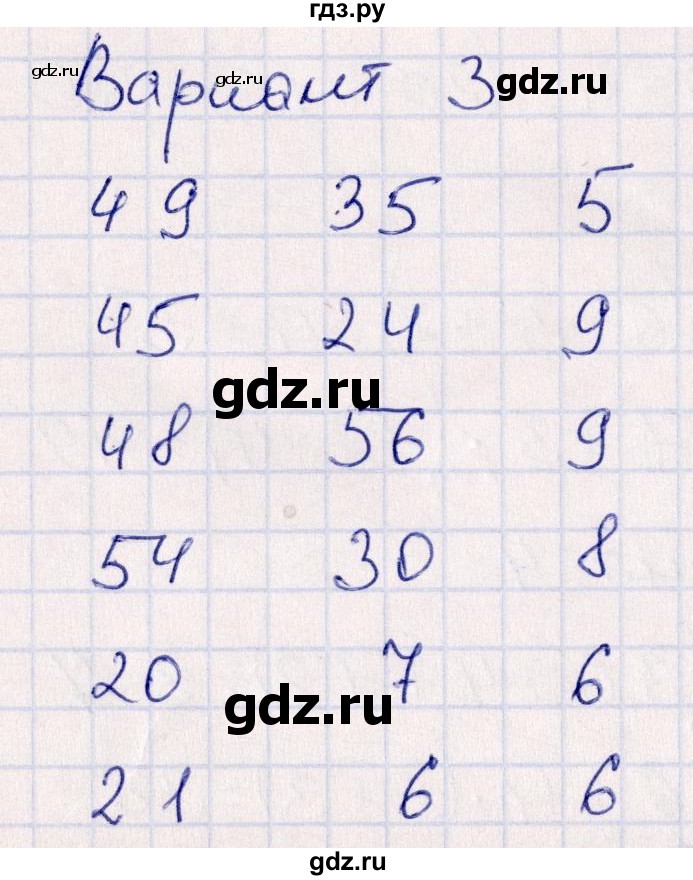 гдз.ру
gdz.ru
gdz.ru
Вариант 3
gdz.ru
49 35 5
45 24 9
gdz.ru
48 56 9
54 30 8
20 7 6
gdz.ru
21 6 6
gdz.ru